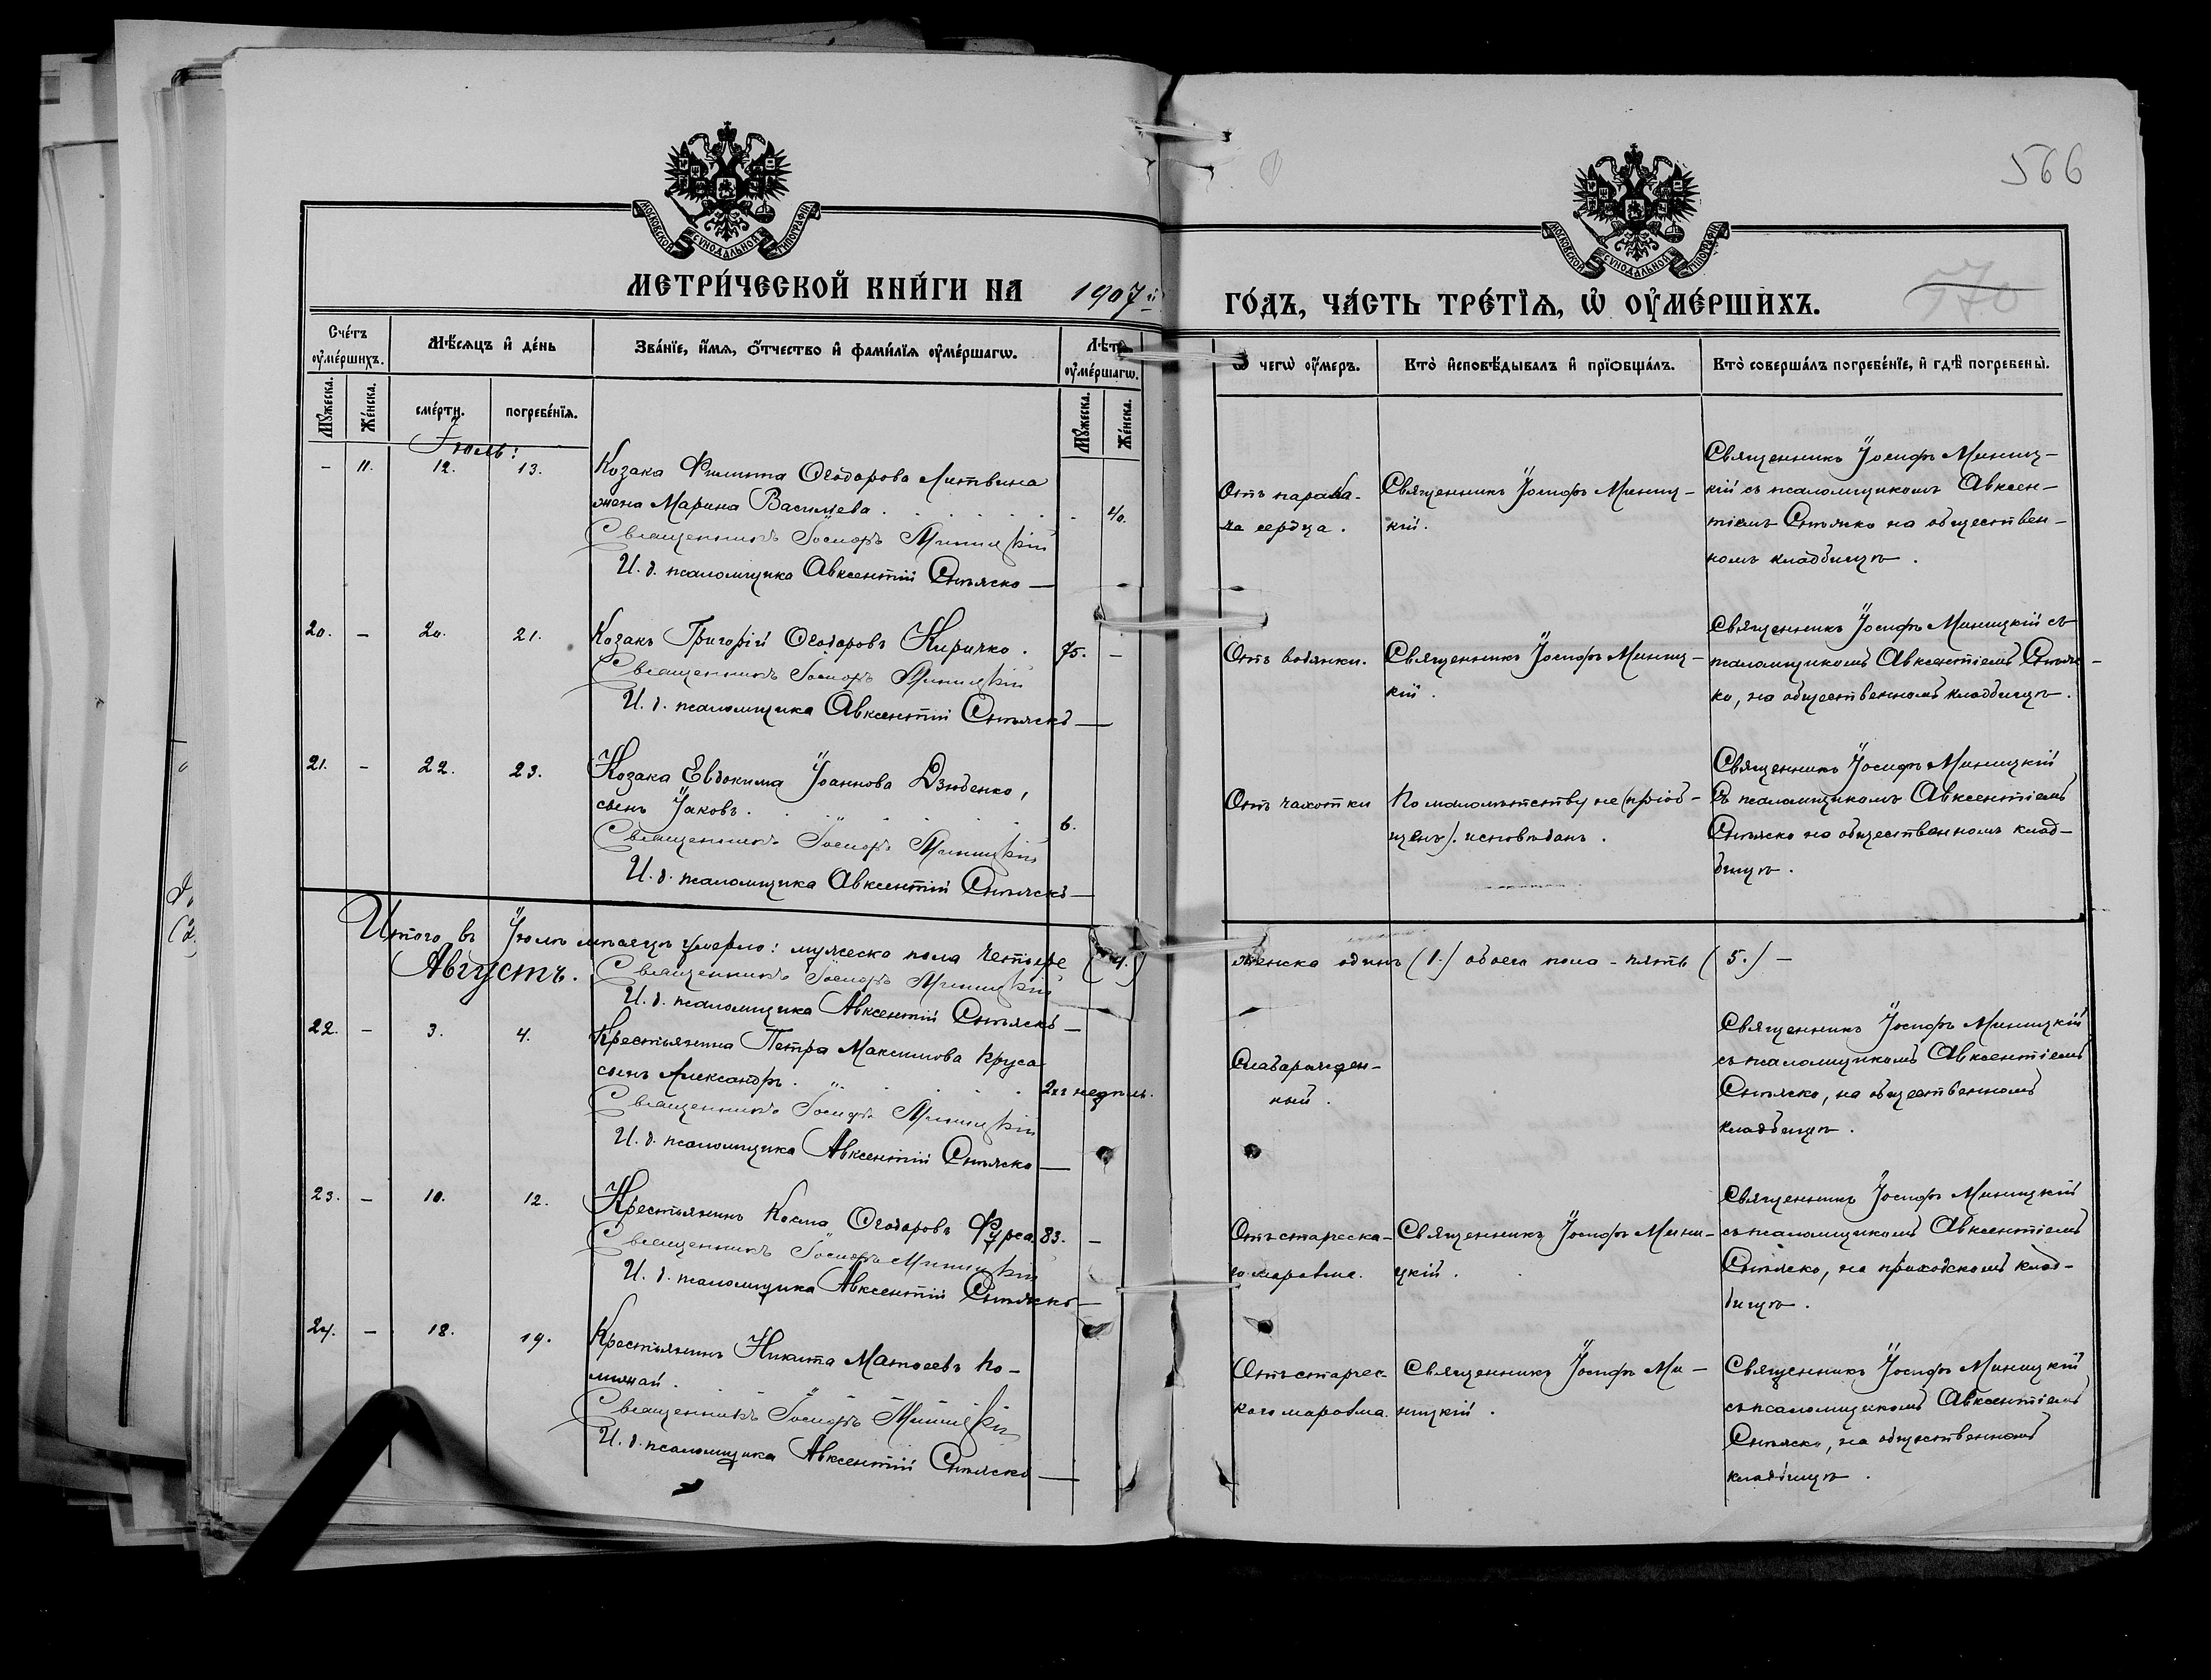 566
МОСКОВСКОЙ СѴНОДАЛЬНОЙ ТИПОГРАФІИ
МОСКОВСКОЙ СѴНОДАЛЬНОЙ ТИПОГРАФІИ
МЕТРИ́ЧЕСКОЙ КНИ́ГИ НА 1907й
ГО́ДЪ, ЧА́СТЬ ТРЕ́ТЇѦ, Ѡ҆ ОУ҆МЕ́РШИХЪ.
570
Сче́тъ оу҆ме́ршихъ.
Мꙋ́жеска.
Же́нска.
Мѣ́сѧцъ и҆ де́нь
сме́рти.
погребе́нїѧ.
Зва́нїе, и҆́мѧ, ѻ҆́тчество и҆ фами́лїѧ оу҆ме́ршагѡ.
Лѣ́та оу҆ме́ршагѡ.
Мꙋ́жеска.
Же́нска.
Ѿ чегѡ̀ оу҆́меръ.
Кто̀ и҆сповѣ́дывалъ и҆ прїѻбща́лъ.
Кто̀ соверша́лъ погребе́нїе, и҆ гдѣ̀ погребены̀.
Іюль:
- 11. 12. 13.
Козака Филиппа Ѳеодорова Литвина
жена Марина Васильева . 40.
Священникъ Іосифъ Миницкій
И. д. псаломщика Авксентій Сытьско
Отъ парали-
ча сердца.
Священникъ Іосифъ Миниц-
кій.
Священникъ Іосифъ Миниц-
кій съ псаломщикомъ Авксен-
тіемъ на обществен-
номъ кладбищѣ.
20. - 20. 21.
Козакъ Григорій Ѳеодоровъ Киричко. 75. -
Священникъ Іосифъ Миницкій
И. д. псаломщика Авксентій
Отъ водянки.
Священникъ Іосифъ Миниц-
кій.
Священникъ Іосифъ Миницкій съ
псаломщикомъ Авксентіемъ
ко, на общественномъ кладбищѣ.
21. - 22. 23.
Козака Евдокима Іоаннова Дзюбенко,
сынъ Іаковъ. 6.
Священникъ Іосифъ Миницкій
И. д. псаломщика Авксентій
Отъ чахотки
По малолѣтству не (пріоб-
щенъ). исповѣданъ.
Священникъ Іосифъ Миницкій
съ псаломщикомъ Авксентіемъ
на общественномъ клад-
бищѣ.
Итого въ Іюлѣ мѣсяцѣ умерло: мужеска пола четыре (4.)
женска одинъ (1.) обоего пола - пять (5.) -
Августъ.
Священникъ Іосифъ Миницкій
И. д. псаломщика Авксентій
22. - 3. 4.
Крестьянина Петра Максимова Круса
сынъ Александръ. 2хъ недѣль.
Священникъ Іосифъ Миницкій
И. д. псаломщика Авксентій
Слаборожден-
ный.
Священникъ Іосифъ Миницкій
съ псаломщикомъ Авксентіемъ
на общественномъ
кладбищѣ.
23. - 10. 12.
Крестьянинъ Косма Ѳеодоровъ Фурса 83. -
Священникъ Іосифъ Миницкій
И. д. псаломщика Авксентій
Отъ старческа-
го маразма.
Священникъ Іосифъ Мини-
цкій.
Священникъ Іосифъ Миницкій
съ псаломщикомъ Авксентіемъ
на приходскомъ клад-
бищѣ.
24. - 18. 19.
Крестьянинъ Никита Матѳеевъ По-
мынай.
Священникъ Іосифъ Миницкій
И. д. псаломщика Авксентій
Отъ старчес-
кого маразма.
Священникъ Іосифъ Ми-
ницкій.
Священникъ Іосифъ Миницкій
съ псаломщикомъ Авксентіемъ
на общественномъ
кладбищѣ.